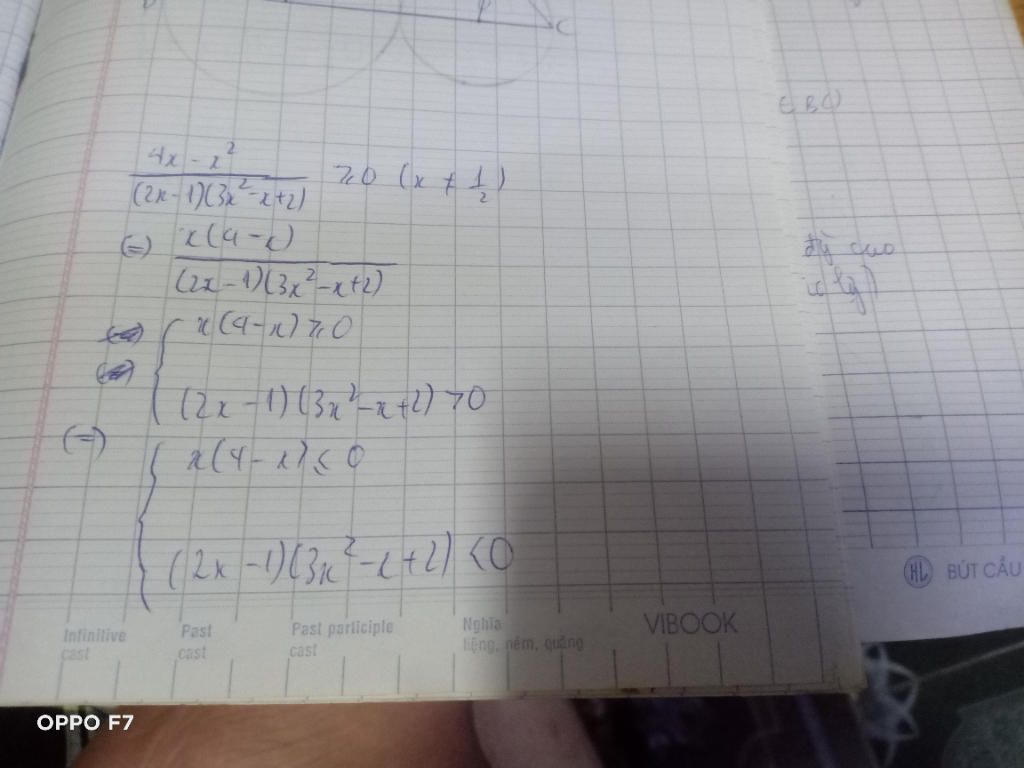 P
C
4x - x²
(2x-1)(3x²-x+2)
≥0 (x ≠ 1/2)
(=)
x(4-x)
(2x-1)(3x²-x+2)
x(4-x) ≥0
(2x-1)(3x²-x+2) >0
(=)
x(4-x) ≤ 0
(2x-1)(3x²-x+2) <0
Infinitive
cast
Past
cast
Past participle
cast
Nghĩa
liệng, ném, quăng
VIBOOK
HL BÚT CẦU
OPPO F7